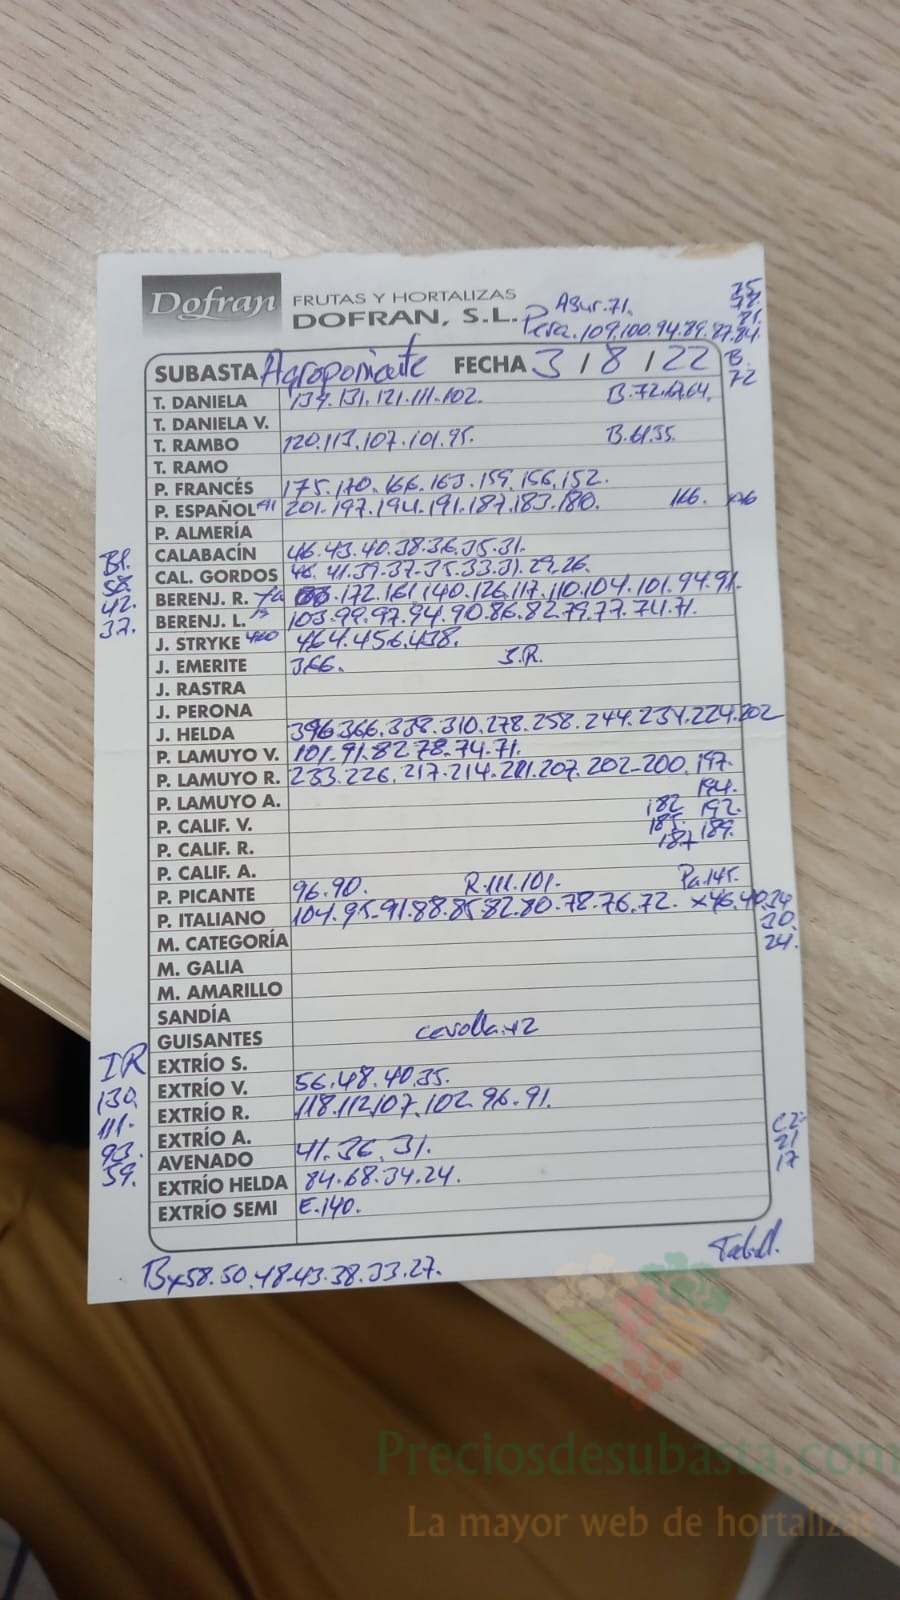 Dofran FRUTAS Y HORTALIZAS
DOFRAN, S.L.
Asur.71.
Pera.109.100.94.89.87.84.
75
78.
81.
B.
72
SUBASTA Agroponiente FECHA 3/8/22
T. DANIELA 137.131.121.111.102. B.72.67.64.
T. DANIELA V.
T. RAMBO 120.113.107.101.95. B.61.35.
T. RAMO
P. FRANCÉS 175.170.166.163.159.156.152.
P. ESPAÑOL 201.197.194.191.187.183.180. 166.
P. ALMERÍA
CALABACÍN 46.43.40.38.36.35.31.
CAL. GORDOS 46.41.39.37.35.33.31.29.26.
Bl.
58.
42.
37.
BERENJ. R. 172.161.140.126.117.110.104.101.94.91.
BERENJ. L. 103.99.97.94.90.86.82.79.77.74.71.
J. STRYKE 464.456.438.
J. EMERITE 366. S.R.
J. RASTRA
J. PERONA
J. HELDA 396.366.338.310.278.258.244.231.224.202
P. LAMUYO V. 101.91.82.78.74.71.
P. LAMUYO R. 233.226.217.214.211.207.202-200.197.
194.
P. LAMUYO A. 182 192.
P. CALIF. V. 185. 189.
187
P. CALIF. R.
P. CALIF. A.
P. PICANTE 96.90. R.111.101. Pa.145.
P. ITALIANO 104.95-91.88.85.82.80.78.76.72. x46.40.34
30.
24.
M. CATEGORÍA
M. GALIA
M. AMARILLO
SANDÍA
GUISANTES cevolla.42
IR
130.
111.
93.
59.
EXTRÍO S.
EXTRÍO V. 56.48.40.35.
EXTRÍO R. 118.112.107.102.96.91.
EXTRÍO A.
AVENADO 41.36.31.
CZ.
21
17
EXTRÍO HELDA 84.68.34.24.
EXTRÍO SEMI E.140.
Bx58.50.48.43.38.33.27.
Preciosdesubasta.com
La mayor web de hortalizas